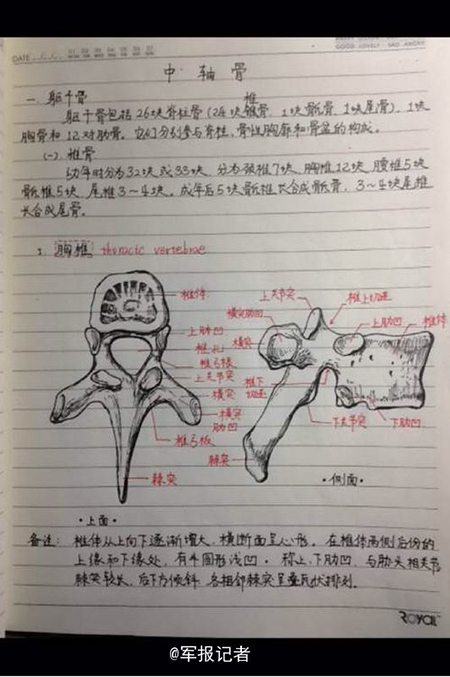 DATE
中 轴 骨
一.躯干骨 椎
躯干骨包括26块脊柱骨(24块椎骨、1块骶骨、1块尾骨)、1块
胸骨和12对肋骨。它们分别参与脊柱、骨性胸廓和骨盆的构成。
(一).椎骨
幼年时分为32块或33块,分为颈椎7块,胸椎12块,腰椎5块
骶椎5块,尾椎3~4块。成年后5块骶椎长合成骶骨,3~4块尾椎
长合成尾骨。
1. 胸椎 thoracic vertebrae
椎体
上肋凹
椎孔
横突
椎弓根
上关节突
横突
横突
肋凹
椎弓板
棘突
·上面·
上关节突
椎上切迹
横突肋凹
上肋凹
椎体
椎下
切迹
下关节突
下肋凹
棘突
·侧面·
备注: 椎体从上向下逐渐增大,横断面呈心形。在椎体两侧后份的
上缘和下缘处,有半圆形浅凹,称上、下肋凹,与肋头相关节
棘突较长,后下方倾斜,各相邻棘突呈叠瓦状排列.
ROYAL
@军报记者